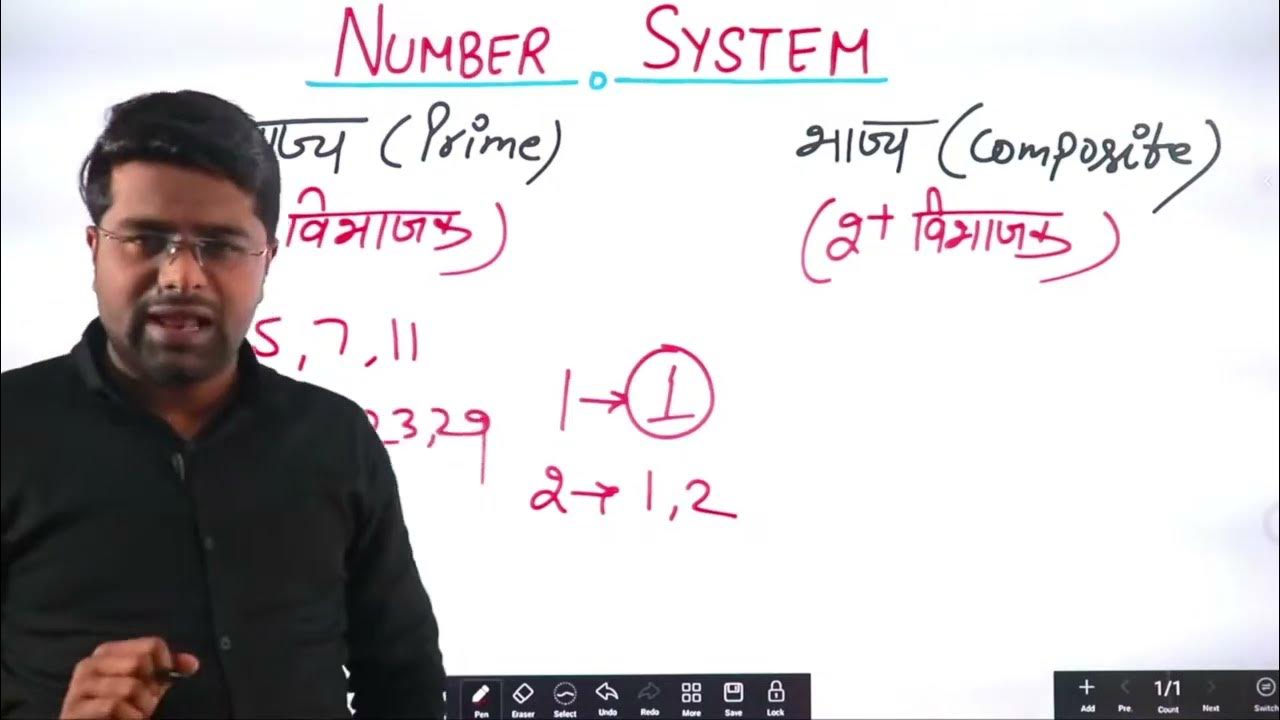 NUMBER SYSTEM
(Prime)
भाज्य (Composite)
विभाजक)
(2+ विभाजक)
5, 7, 11
23, 29
1 → 1
2 → 1, 2
Pen Eraser Select Undo Redo More Save Lock
1/1
Add Pre. Count Next Switch